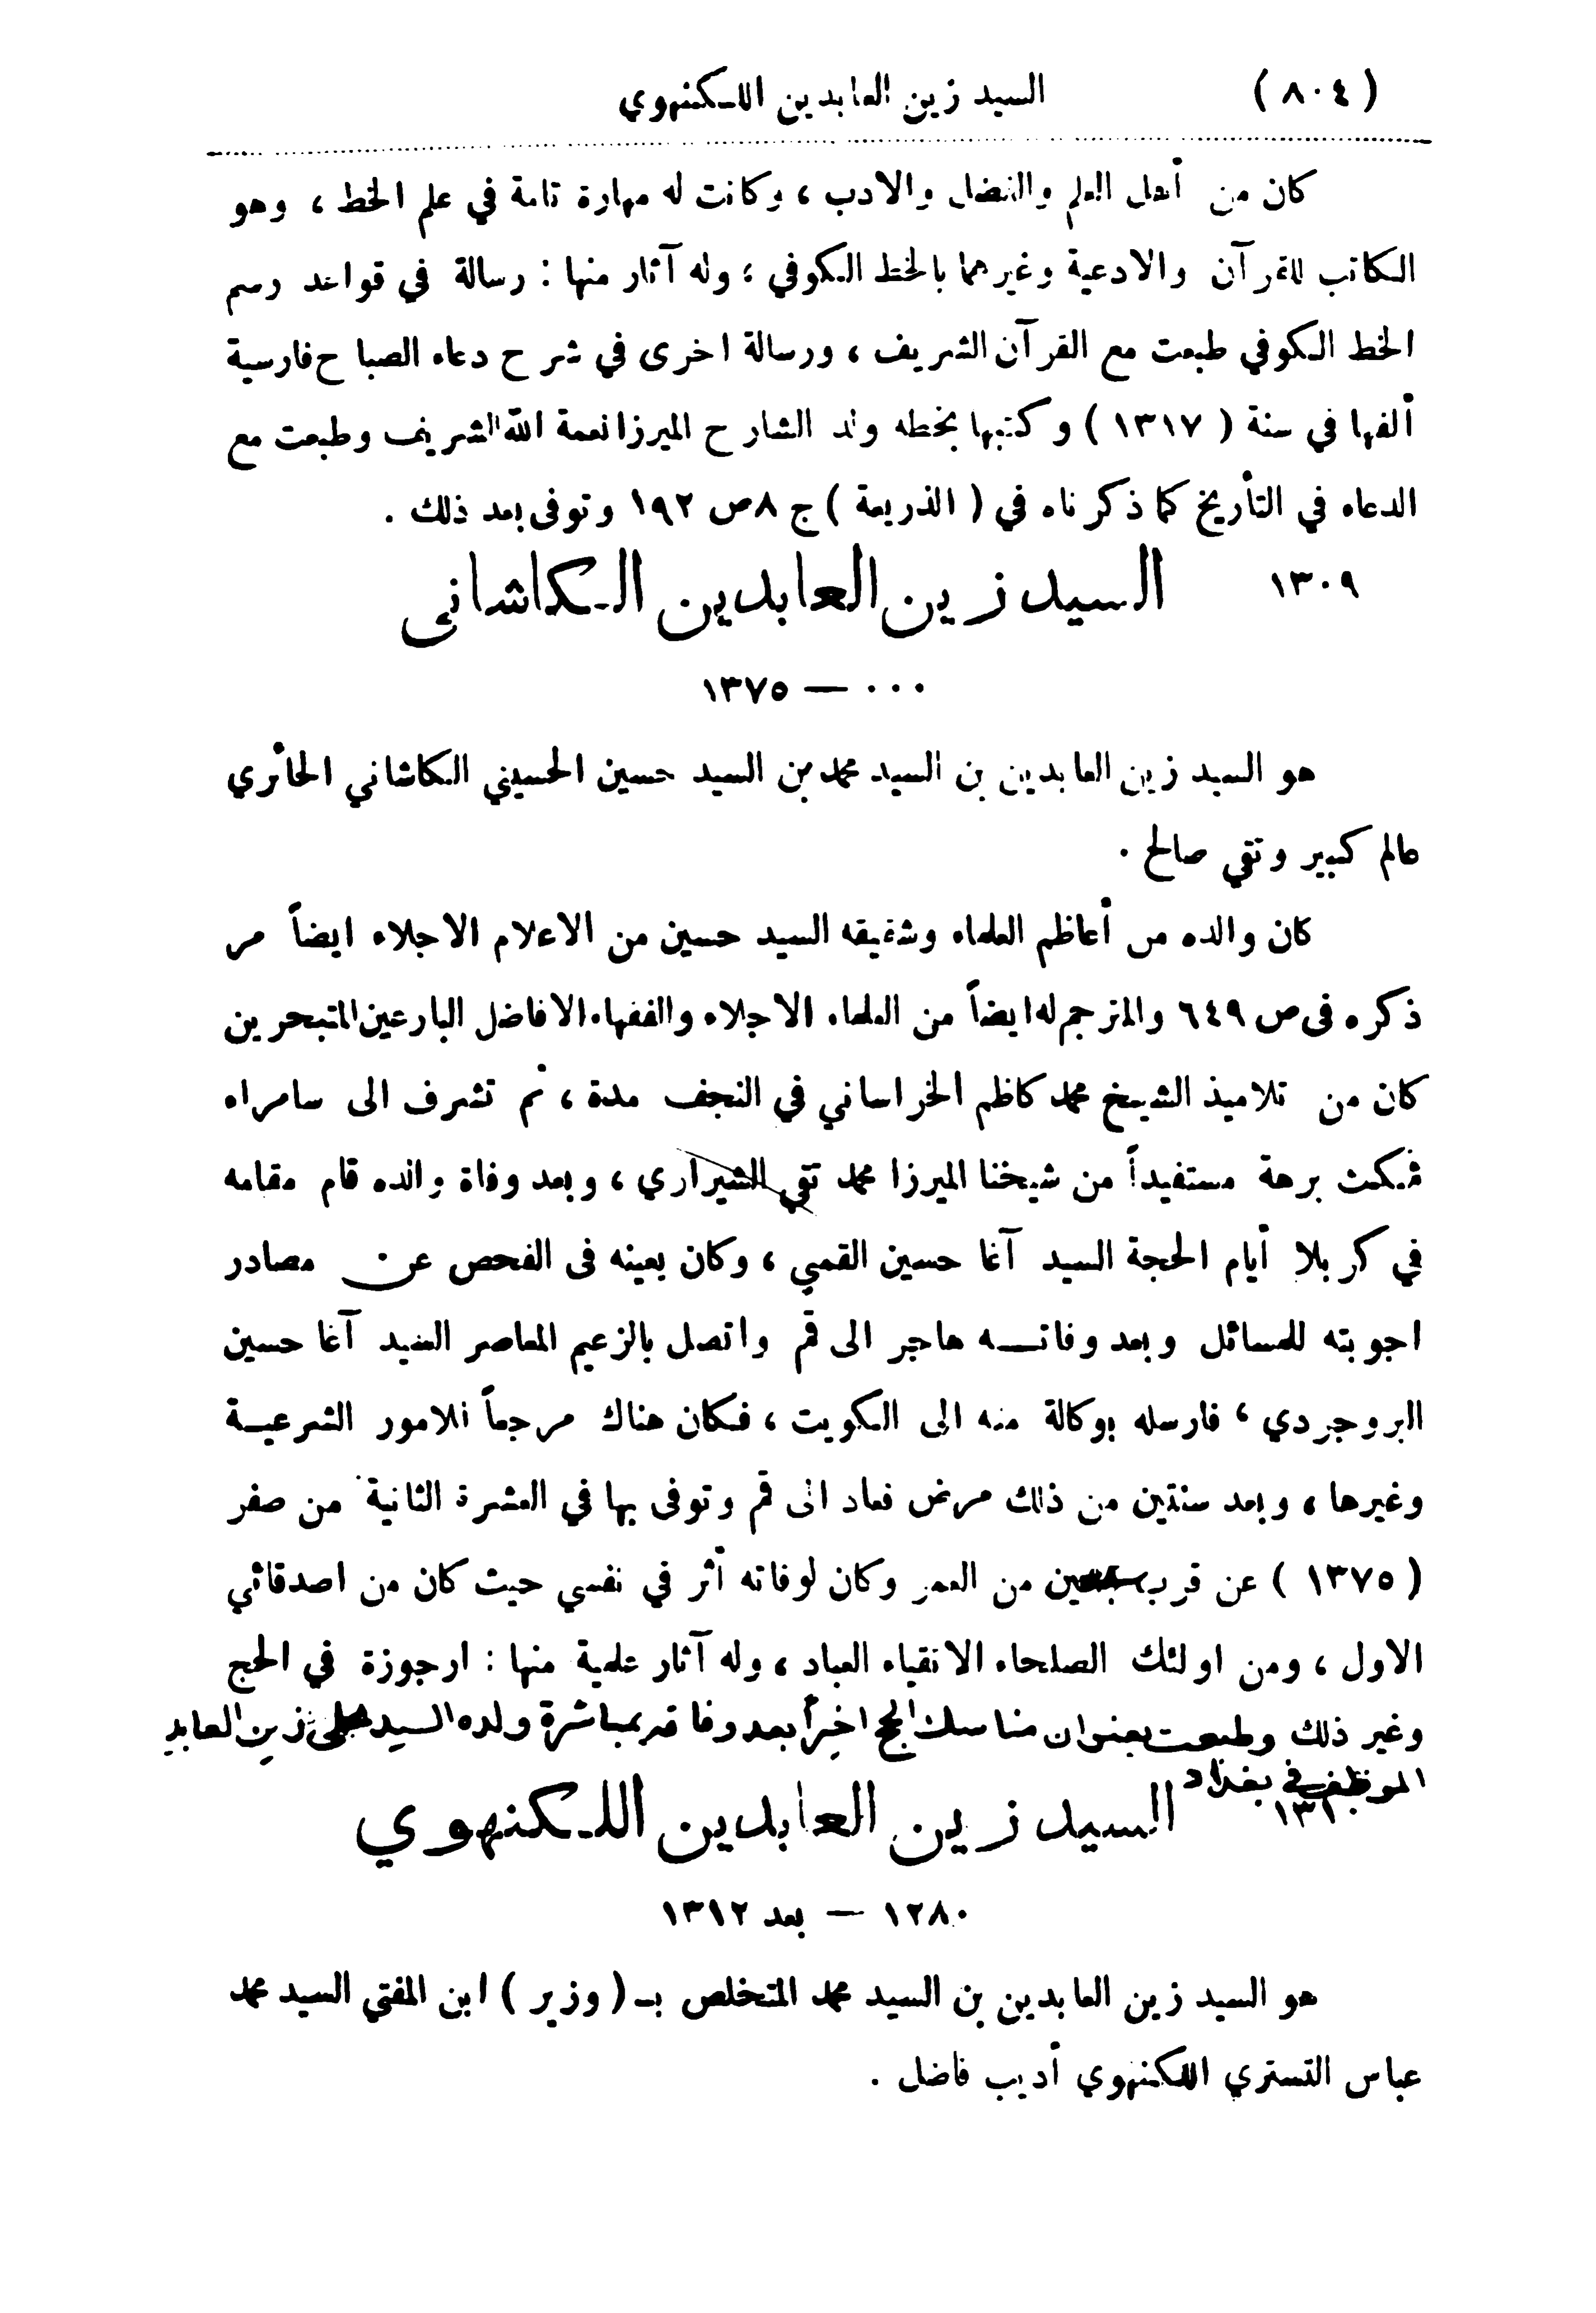 ( ٨٠٤ ) السيد زين العابدين اللـكنهوي
كان من أهل العلم والفضل والادب ، وكانت له مهارة تامة في علم الخط ، وهو
الـكاتب للقرآن والادعية وغيرهما بالخط الـكوفي ، وله آثار منها : رسالة في قواعد رسم
الخط الـكوفي طبعت مع القرآن الشريف ، ورسالة اخرى في شرح دعاء الصباح فارسية
ألفها في سنة ( ١٣١٧ ) وكتبها بخطه ولد الشارح الميرزا نعمة الله الشريف وطبعت مع
الدعاء في التأريخ كما ذكرناه في ( الذريعة ) ج ٨ ص ١٩٢ وتوفى بعد ذلك .
١٣٠٩ السيد زين العابدين الـكاشاني
٠٠٠ — ١٣٧٥
هو السيد زين العابدين بن السيد محمد بن السيد حسين الحسيني الـكاشاني الحائري
عالم كبير وتقي صالح .
كان والده من أعاظم العلماء وشقيقه السيد حسين من الاعلام الاجلاء ايضاً مر
ذكره فى ص ٦٤٩ والمترجم له ايضاً من العلماء الاجلاء والفقهاء الافاضل البارعين المتبحرين
كان من تلاميذ الشيخ محمد كاظم الخراساني في النجف مدة ، ثم تشرف الى سامراء
فمكث برهة مستفيداً من شيخنا الميرزا محمد تقي الشيرازي ، وبعد وفاة والده قام مقامه
في كربلا أيام الحجة السيد آغا حسين القمي ، وكان يعينه فى الفحص عن مصادر
اجوبته للمسائل وبعد وفاتـــه هاجر الى قم واتصل بالزعيم المعاصر السيد آغا حسين
البروجردي ، فارسله بوكالة منه الى الـكويت ، فـكان هناك مرجعاً للامور الشرعيـــة
وغيرها ، وبعد سنتين من ذلك مرض فعاد الى قم وتوفى بها في العشرة الثانية من صفر
( ١٣٧٥ ) عن قرب من العمر وكان لوفاته أثر في نفسي حيث كان من اصدقائي
الاول ، ومن اولئك الصلحاء الاتقياء العباد ، وله آثار علمية منها : ارجوزة في الحج
وغير ذلك وطبعت بعنوان مناسك الحج اخيراً بعد وفاته بمباشرة ولده السيد زين العابد
الموظف في بغداد
١٣١٠ السيد زين العابدين اللـكنهوي
١٢٨٠ — بعد ١٣١٢
هو السيد زين العابدين بن السيد محمد المتخلص بـ ( وزير ) ابن المفتي السيد محمد
عباس التستري اللكنهوي أديب فاضل .